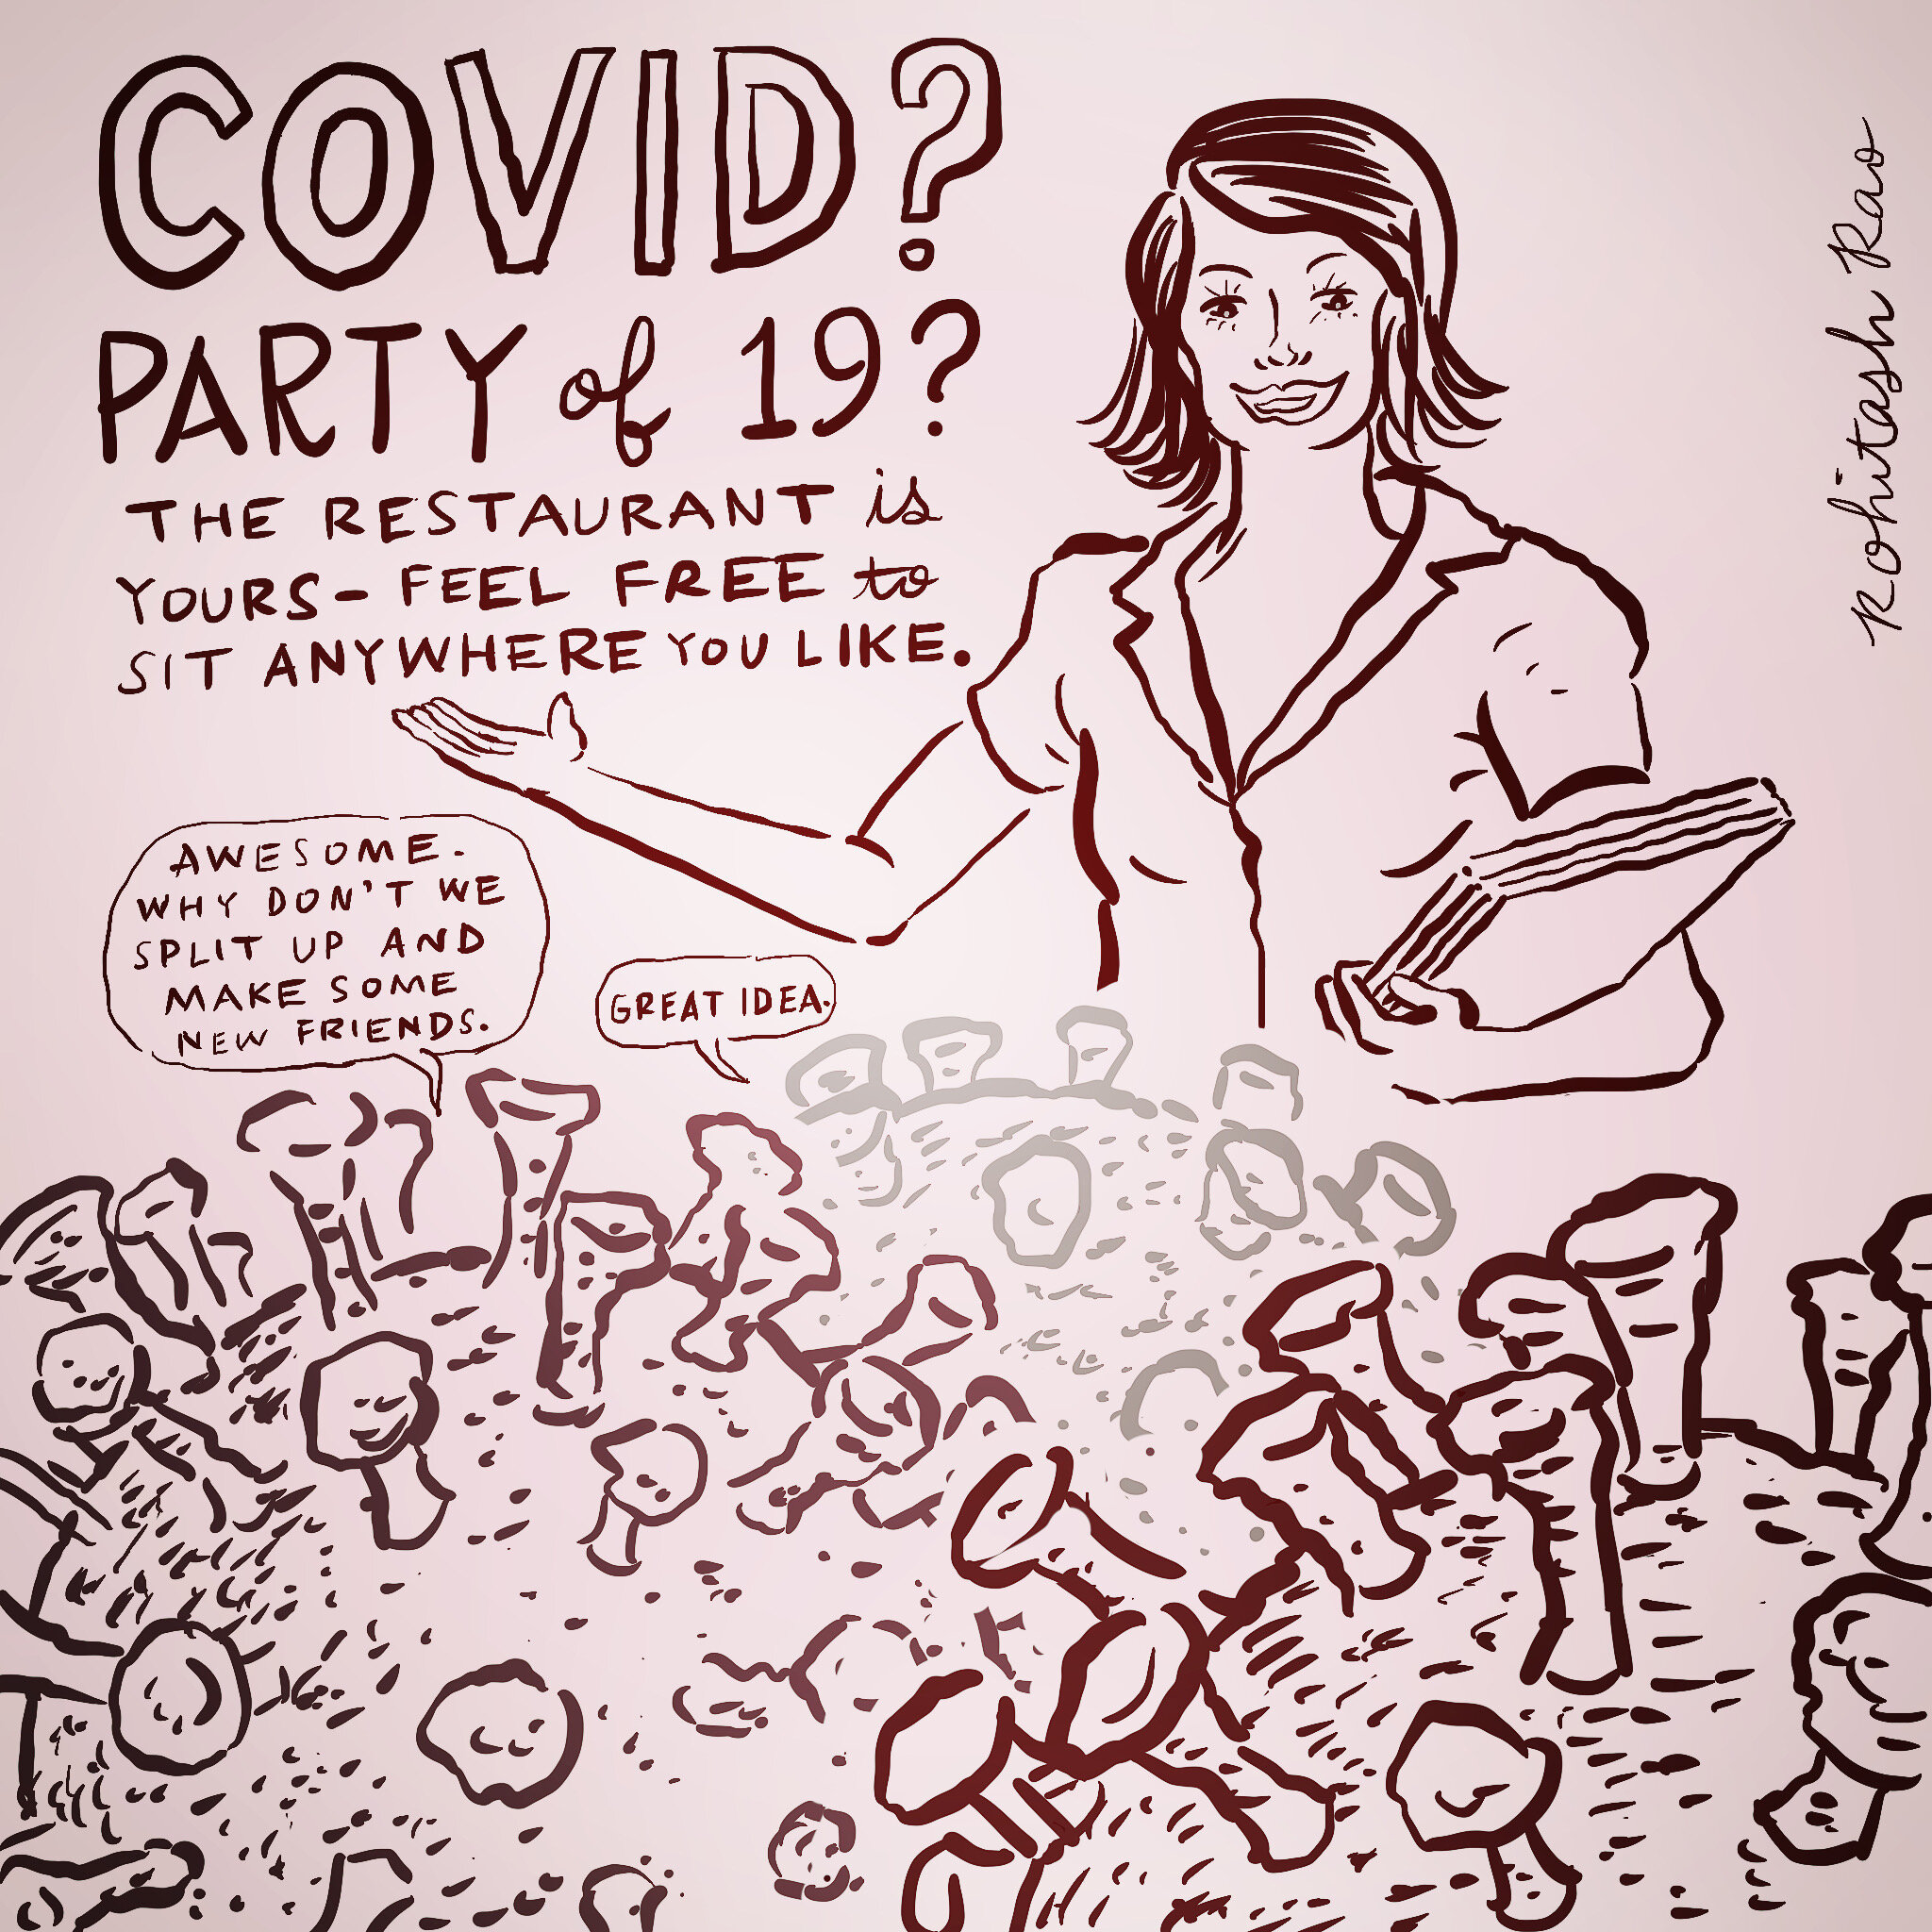 COVID?
PARTY of 19?
THE RESTAURANT is
YOURS - FEEL FREE to
SIT ANYWHERE YOU LIKE.
AWESOME.
WHY DON'T WE
SPLIT UP AND
MAKE SOME
NEW FRIENDS.
GREAT IDEA.
Rohitash Rao